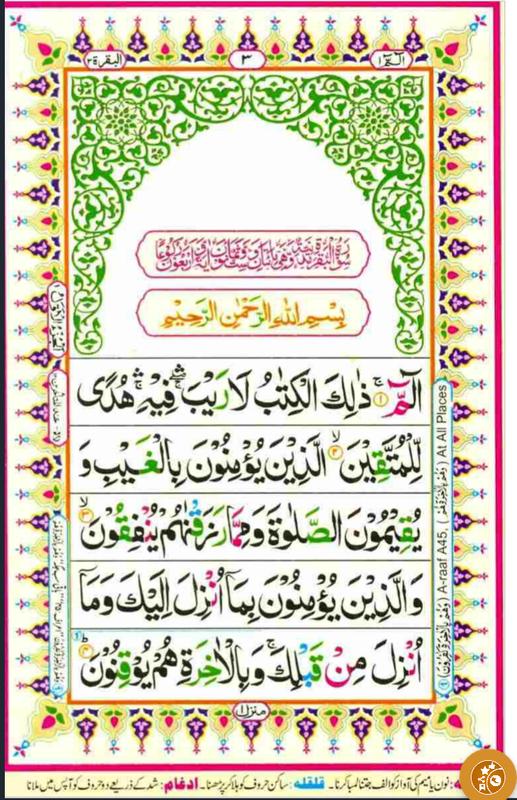 الٓمّٓ ١
٣
البقرة ٢
سُوْرَةُ الْبَقَرَةِ مَدَنِيَّةٌ وَّهِيَ مِائَتَانِ وَسِتٌّ وَّثَمَانُوْنَ اٰيَةً وَّاَرْبَعُوْنَ رُكُوْعًا
بِسْمِ اللّٰهِ الرَّحْمٰنِ الرَّحِيْمِ
الٓمّٓ ۚ‏ ١ ذٰلِكَ الْكِتٰبُ لَا رَيْبَ ۛۖ فِيْهِ ۛۚ هُدًى
لِّلْمُتَّقِيْنَ ۙ‏ ٢ الَّذِيْنَ يُؤْمِنُوْنَ بِالْغَيْبِ وَ
يُقِيْمُوْنَ الصَّلٰوةَ وَمِمَّا رَزَقْنٰهُمْ يُنْفِقُوْنَ ۙ‏ ٣
وَالَّذِيْنَ يُؤْمِنُوْنَ بِمَآ اُنْزِلَ اِلَيْكَ وَمَآ
اُنْزِلَ مِنْ قَبْلِكَ ۚ وَبِالْاٰخِرَةِ هُمْ يُوْقِنُوْنَ ؕ‏ ٤
A-raaf A45. ( وَهُمْ بِالْاٰخِرَةِ هُمْ ) At All Places
منزل ١
: نون یا میم کی آواز کو الف جتنا لمبا کرنا۔ قلقلہ: ساکن حروف کو ہلا کر پڑھنا۔ ادغام: شد کے ذریعے دو حروف کو آپس میں ملانا